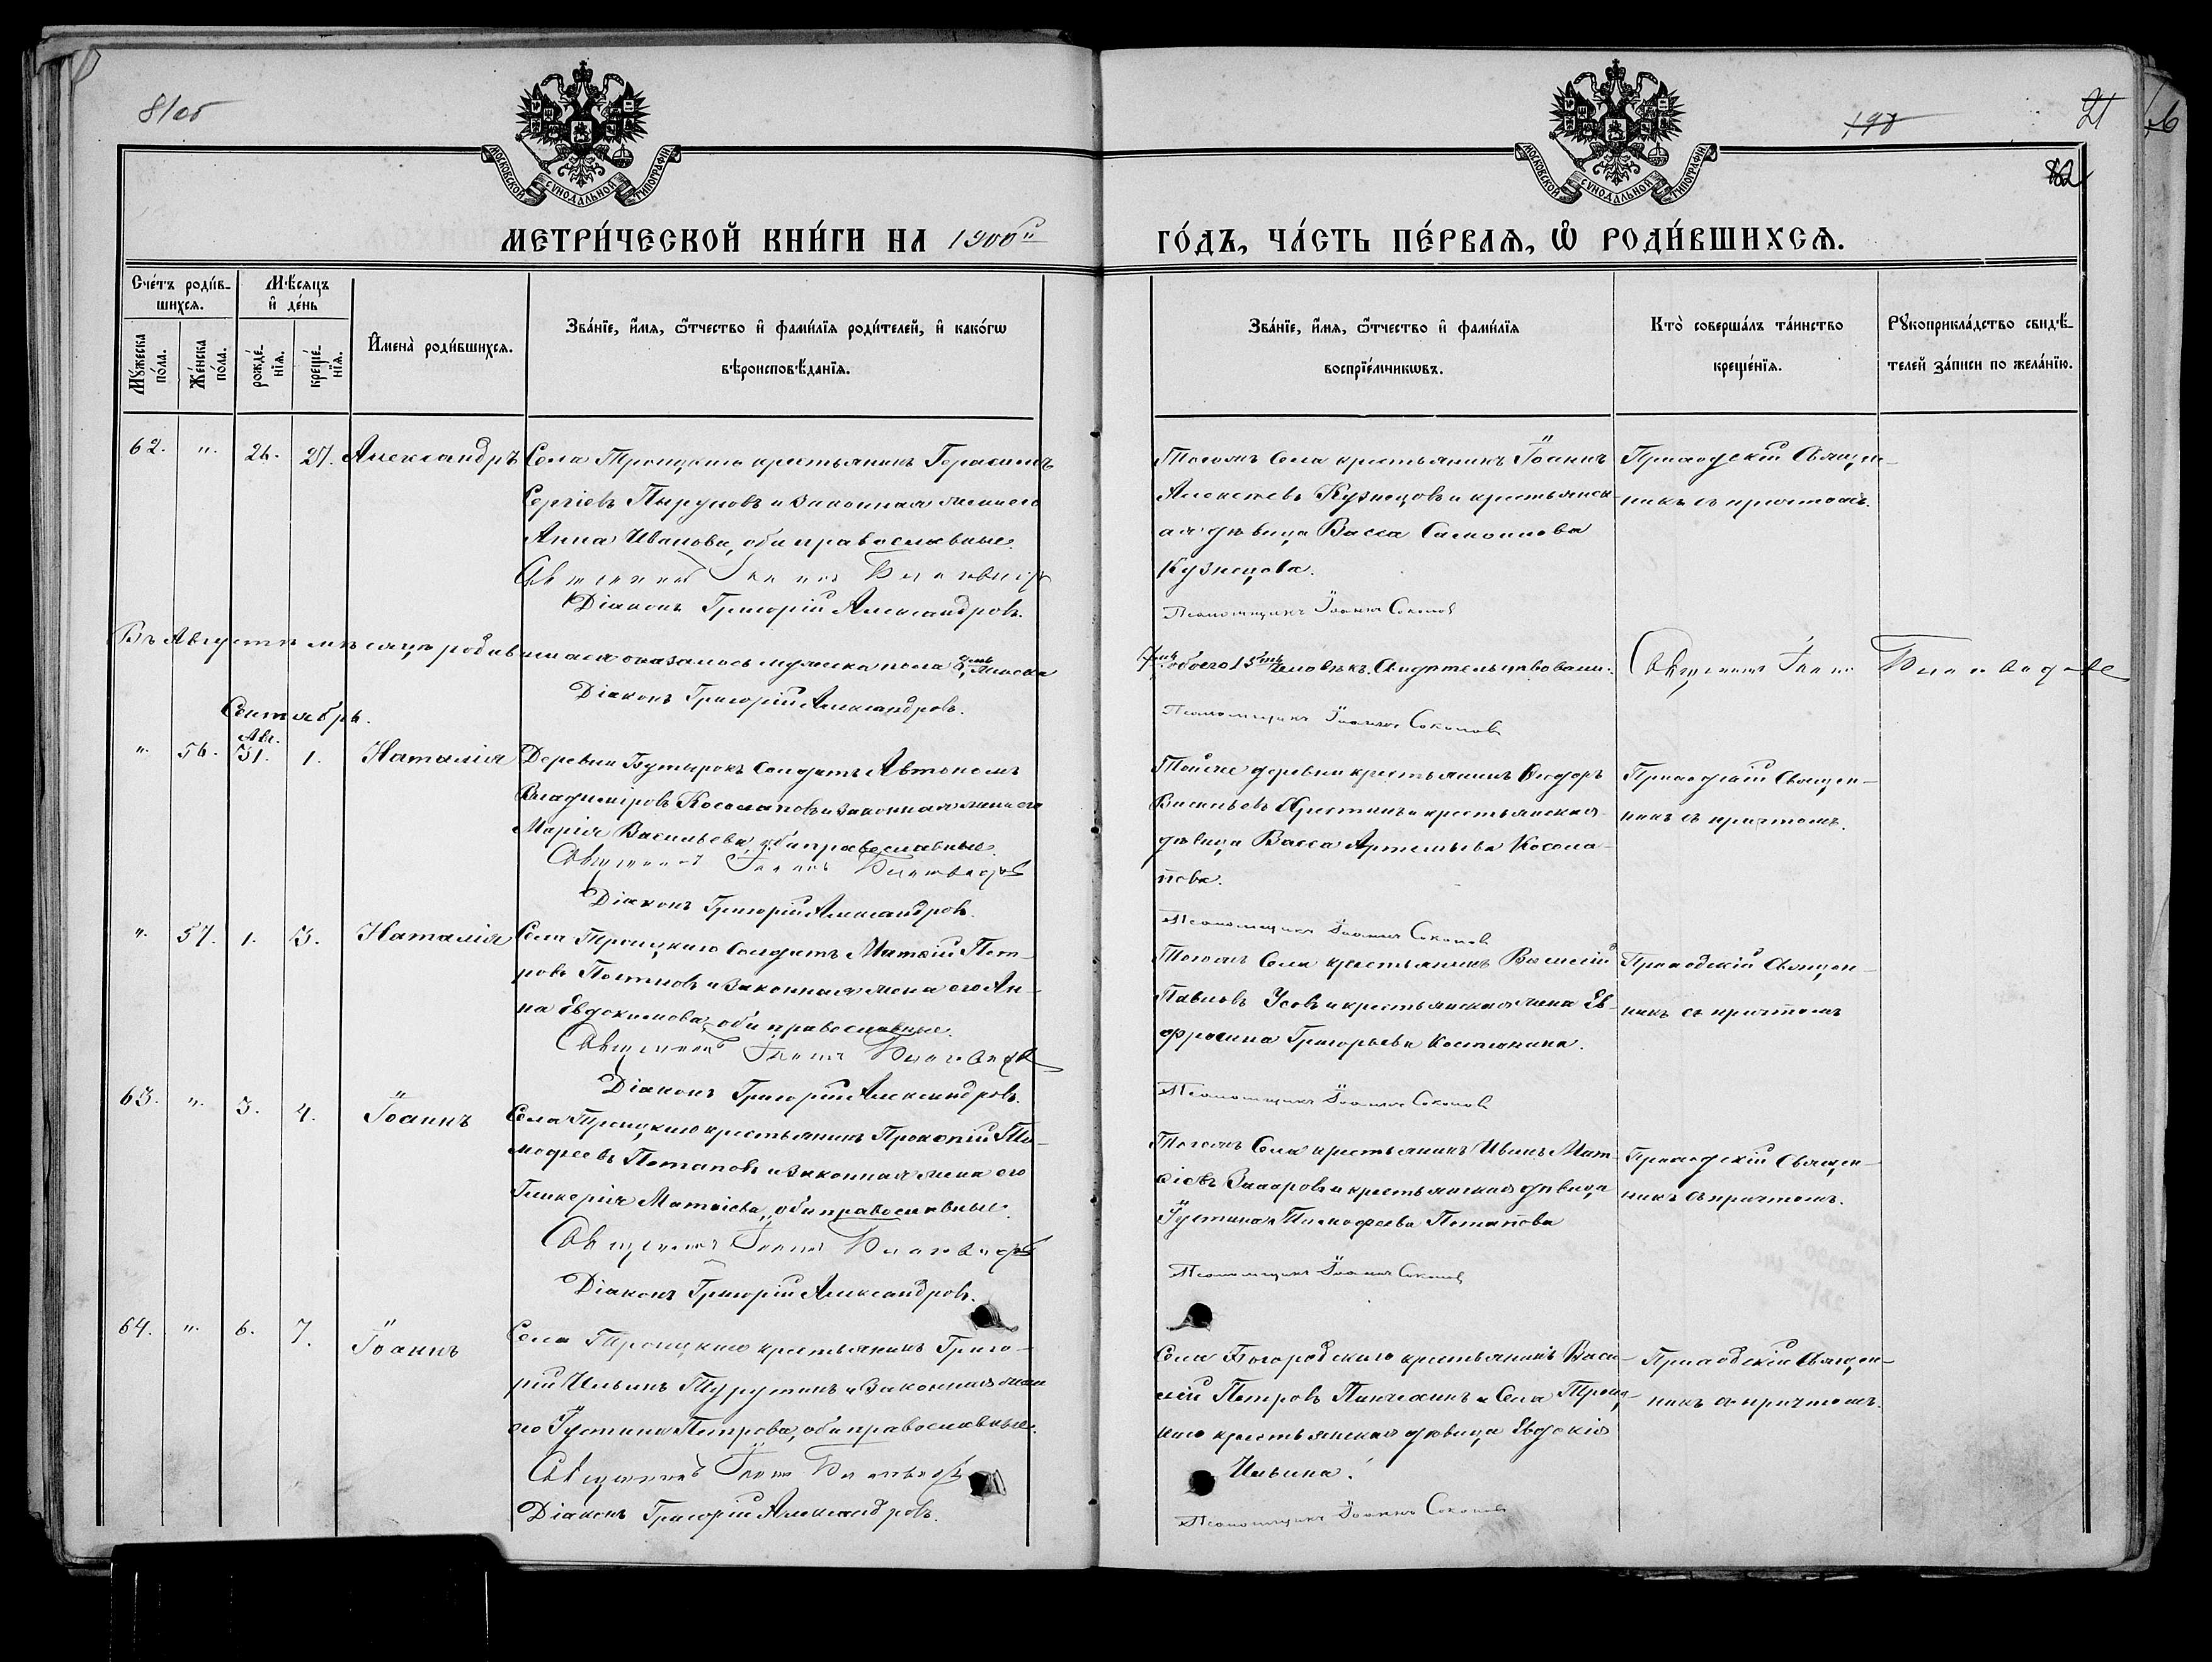 81об
198
21
82
МОСКОВСКОЙ СѴНОДАЛЬНОЙ ТИПОГРАФІИ
МОСКОВСКОЙ СѴНОДАЛЬНОЙ ТИПОГРАФІИ
МЕТРИ́ЧЕСКОЙ КНИ́ГИ НА 1900й
ГО́ДЪ, ЧА́СТЬ ПЕ́РВАѦ, Ѡ҆ РОДИ́ВШИХСѦ.
Сче́тъ роди́в-
шихсѧ.
Мꙋ́жеска
по́ла.
Же́нска
по́ла.
Мѣ́сѧцъ
и҆ де́нь
рожде́-
нїѧ.
креще́-
нїѧ.
И҆мена̀ роди́вшихсѧ.
Зва́нїе, и҆́мѧ, ѻ҆́тчество и҆ фами́лїѧ роди́телей, и҆ како́гѡ
вѣроисповѣ́данїѧ.
Зва́нїе, и҆́мѧ, ѻ҆́тчество и҆ фами́лїѧ
воспрїе́мникѡвъ.
Кто̀ соверша́лъ та́инство
креще́нїѧ.
Рꙋкоприкла́дство свидѣ́-
телей за́писи по жела́нїю.
62. ". 26. 27. Александръ
Села Троицкаго крестьянинъ Герасимъ
Сергіевъ Пыруновъ и законная жена его
Анна Иванова, оба православные.
Священникъ Іоаннъ
Діаконъ Григорій Александровъ.
Тогожъ Села крестьянинъ Іоаннъ
Алексѣевъ Кузнецовъ и крестьянск-
ая дѣвица Васса Самоилова
Кузнецова.
Псаломщикъ Іоаннъ Соколовъ
Приходскій Священ-
никъ съ причтомъ.
Въ Августѣ мѣсяцѣ родившихся оказалось мужеска пола 8мь, женска
7мь, обоего 15ть человѣкъ. Свидѣтельствовали:
Священникъ Іоаннъ
Діаконъ Григорій Александровъ.
Псаломщикъ Іоаннъ Соколовъ
Сентябрь.
". 56. Авг. 31. 1. Наталія
Деревни Бутырокъ Солдатъ Автономъ
Владиміровъ Косолаповъ и законная жена его
Марія Васильева, оба православные.
Священникъ Іоаннъ
Діаконъ Григорій Александровъ.
Тойже деревни крестьянинъ Ѳеодоръ
Васильевъ и крестьянская
дѣвица Васса Артемьева Косола-
пова.
Псаломщикъ Іоаннъ Соколовъ
Приходскій Священ-
никъ съ причтомъ.
". 57. 1. 3. Наталія
Села Троицкаго Солдатъ Матѳій Пет-
ровъ и законная жена его Ан-
на Евдокимова, оба православные.
Священникъ Іоаннъ
Діаконъ Григорій Александровъ.
Тогожъ Села крестьянинъ Василій
Павловъ Усовъ и крестьянская жена Ев-
фросина Григорьева Костюнина.
Псаломщикъ Іоаннъ Соколовъ
Приходскій Священ-
никъ съ причтомъ
63. ". 3. 4. Іоаннъ
Села Троицкаго крестьянинъ Прокопій Ти-
мофеевъ Потаповъ и законная жена его
Гликерія Матѳіева, оба православные.
Священникъ Іоаннъ
Діаконъ Григорій Александровъ.
Тогожъ Села крестьянинъ Иванъ Мат-
ѳіевъ Захаровъ и крестьянская дѣвица
Іустина Тимофеева Потапова
Псаломщикъ Іоаннъ Соколовъ
Приходскій Священ-
никъ съ причтомъ.
64. ". 6. 7. Іоаннъ
Села Троицкаго крестьянинъ Григо-
рій Ильинъ и законная жена
его Іустина Петрова, оба православные.
Священникъ Іоаннъ
Діаконъ Григорій Александровъ.
Села Богородскаго крестьянинъ Васи-
лій Петровъ и Села Троиц-
каго крестьянская дѣвица Евдокія
Ильина.
Псаломщикъ Іоаннъ Соколовъ
Приходскій Священ-
никъ съ причтомъ.